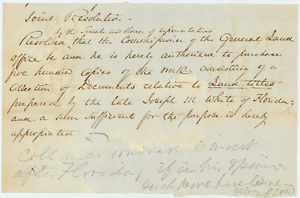 Joint Resolution.
by the Senate and House of Representatives
Resolved that the Commissioner of the General Land
office be and he is hereby authorized to purchase
five hundred copies of the work consisting of a
Collection of Documents relative to Land titles
prepared by the late Joseph M. White of Florida:
and a sum sufficient for the purpose is hereby
appropriated
to insert
after Florida, if in his opinion